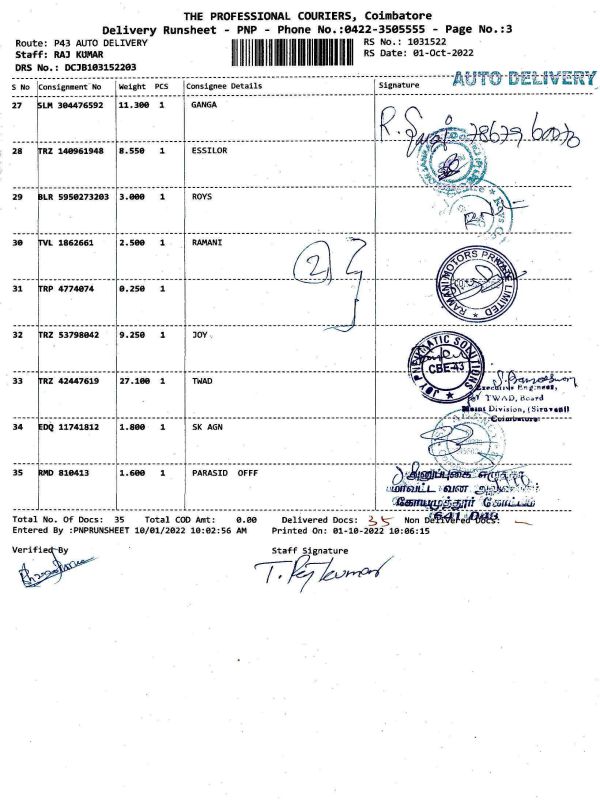 THE PROFESSIONAL COURIERS, Coimbatore
Delivery Runsheet - PNP - Phone No.:0422-3505555 - Page No.:3
Route: P43 AUTO DELIVERY RS No.: 1031522
Staff: RAJ KUMAR RS Date: 01-Oct-2022
DRS No.: DCJB103152203
AUTO DELIVERY
S No Consignment No Weight PCS Consignee Details Signature
27 SLM 304476592 11.300 1 GANGA
28 TRZ 140961948 8.550 1 ESSILOR
29 BLR 5950273203 3.000 1 ROYS
30 TVL 1862661 2.500 1 RAMANI
2
RAMANI MOTORS PRIVATE LIMITED
31 TRP 4774074 0.250 1
32 TRZ 53798042 9.250 1 JOY
JOY PNEUMATIC SOLUTIONS
CBE-43
33 TRZ 42447619 27.100 1 TWAD
Executive Engineer,
TWAD, Board
Maint Division, (Siruvani)
Coimbatore
34 EDQ 11741812 1.800 1 SK AGN
35 RMD 810413 1.600 1 PARASID OFFF
அனுப்புகை எழுத்தர்
மாவட்ட வன
கோயமுத்தூர் கோட்டம்
641 043
Total No. Of Docs: 35 Total COD Amt: 0.00 Delivered Docs: 35 Non Delivered Docs: -
Entered By :PNPRUNSHEET 10/01/2022 10:02:56 AM Printed On: 01-10-2022 10:06:15
Verified By Staff Signature
T. Rajkumar